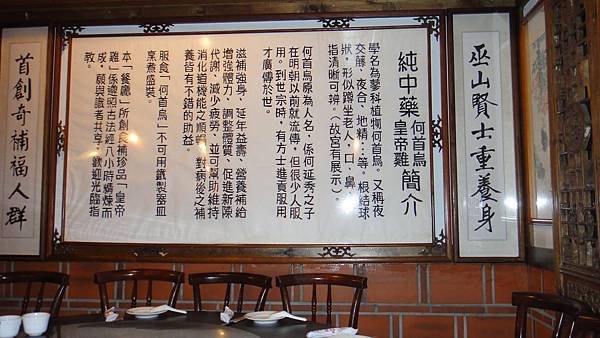 巫山賢士重養身
純中藥何首烏皇帝雞簡介
學名為蓼科植物何首烏。又稱夜
交藤、夜合、地精…等。根結球
狀,形似蹲坐老人,口、鼻
指清晰可辨。(故宮有展示)。
何首烏原為人名,係何延秀之子
在明朝以前就流傳,但很少人服
用。到世宗時,有方士進貢服用
才廣傳於世。
滋補強身、延年益壽、營養補給
增強體力、調整體質、促進新陳
代謝、減少疲勞,並可幫助維持
消化道機能之順暢,對病後之補
養皆有不錯的助益。
服食「何首烏」不可用鐵製器皿
烹煮盛裝。
本「餐廳」所創食補珍品「皇帝
雞」係遵照古法經八小時燉煉而
成,願與識者共享,歡迎光臨指
教。
首創奇補福人群